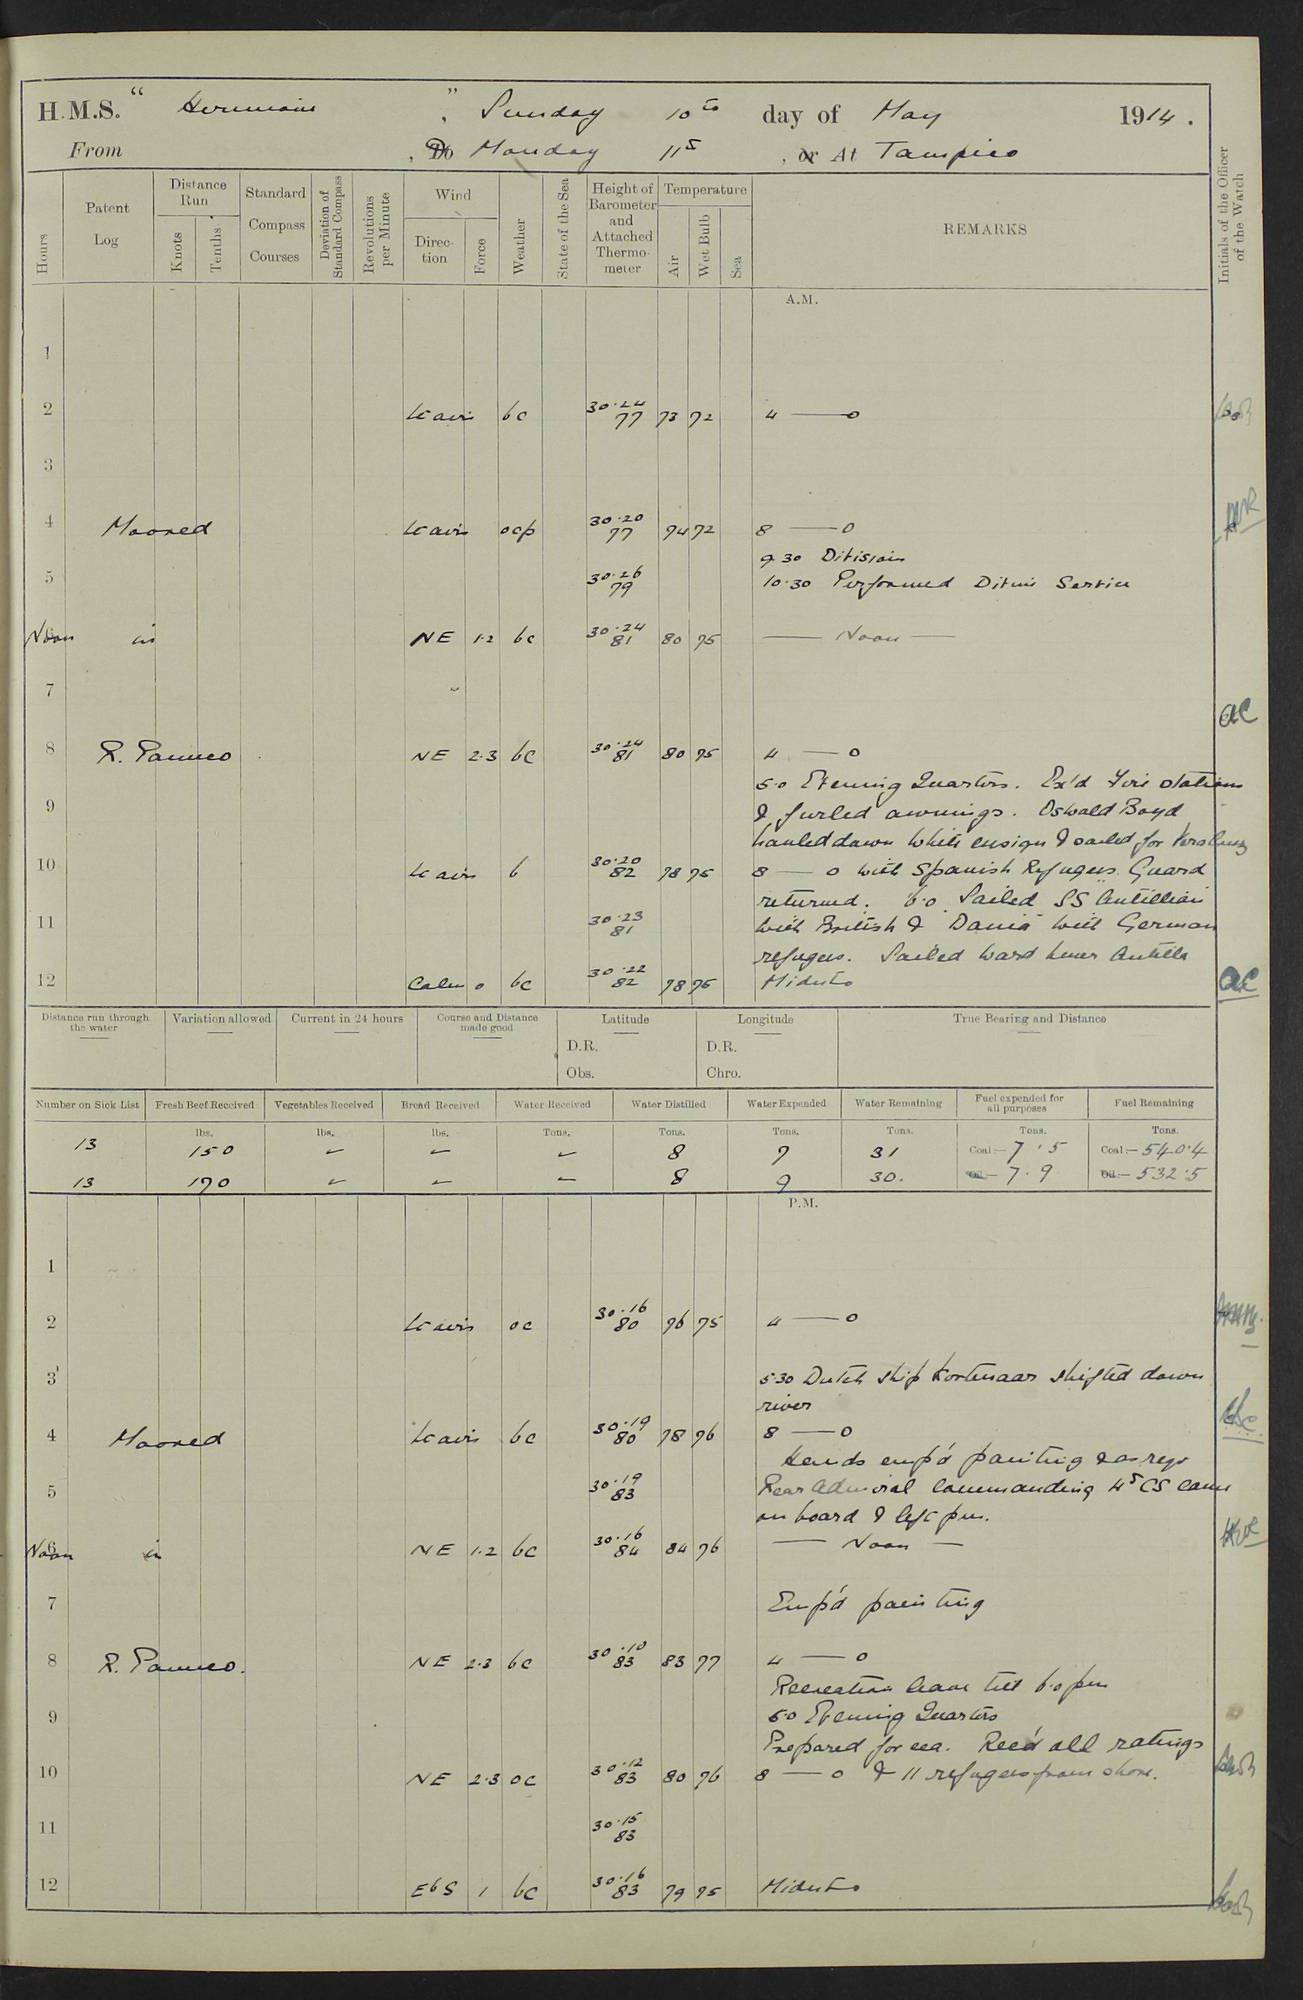 H.M.S. " Hermione " , Sunday 10th day of May 1914.
From , Do Monday 11th , or At Tampico
Hours
Patent Log
Distance Run
Knots
Tenths
Standard Compass Courses
Deviation of Standard Compass
Revolutions per Minute
Wind
Direction
Force
Weather
State of the Sea
Height of Barometer and Attached Thermometer
Temperature
Air
Wet Bulb
Sea
REMARKS
Initials of the Officer of the Watch
A.M.
1
2 Lt airs bc 30.24 77 73 72 4 —— 0
3
4 Moored Lt airs ocp 30.20 77 74 72 8 —— 0
9 30 Divisions
5 30.26 79 10.30 Performed Divine Service
Noon in NE 1.2 bc 30.24 81 80 75 —— Noon ——
7
AC
8 R. Panuco NE 2.3 bc 30.24 81 80 75 4 —— 0
5.0 Evening Quarters. Ex'd Fire stations
9 & furled awnings. Oswald Boyd
hauled down White ensign & sailed for Vera Cruz
10 Lt airs b 30.20 82 78 75 8 —— 0 with Spanish Refugees. Guard
returned. 6.0 Sailed SS "Antillian
11 30.23 81 with British & "Dania" with German
refugees. Sailed Ward liner Antilla
12 Calm 0 bc 30.22 82 78 75 Midnt AC
Distance run through the water
Variation allowed
Current in 24 hours
Course and Distance made good
Latitude
D.R.
Obs.
Longitude
D.R.
Chro.
True Bearing and Distance
Number on Sick List
Fresh Beef Received
Vegetables Received
Bread Received
Water Received
Water Distilled
Water Expended
Water Remaining
Fuel expended for all purposes
Fuel Remaining
lbs. lbs. lbs. Tons. Tons. Tons. Tons. Tons. Tons.
13 150 8 7 31 Coal:— 7.5 Coal:— 540.4
13 170 8 9 30. Oil:— 7.9 Oil:— 532.5
P.M.
1
2 Lt airs oc 30.16 80 76 75 4 —— 0
3 5.30 Dutch ship Kortenaar shifted down
river
4 Moored Lt airs bc 30.19 80 78 76 8 —— 0
Hands emp'd painting & as req
5 30.19 83 Rear Admiral Commanding 4th CS came
on board & left pm.
Noon in NE 1.2 bc 30.16 84 84 76 —— Noon ——
7 Emp'd painting
8 R. Panuco. NE 2.3 bc 30.10 83 83 77 4 —— 0
Recreation leave till 6.0 pm
9 5.0 Evening Quarters
Prepared for sea. Rec'd all ratings
10 NE 2.3 oc 30.12 83 80 76 8 —— 0 & 11 refugees from shore.
11 30.15 83
12 EbS 1 bc 30.16 83 79 75 Midnt